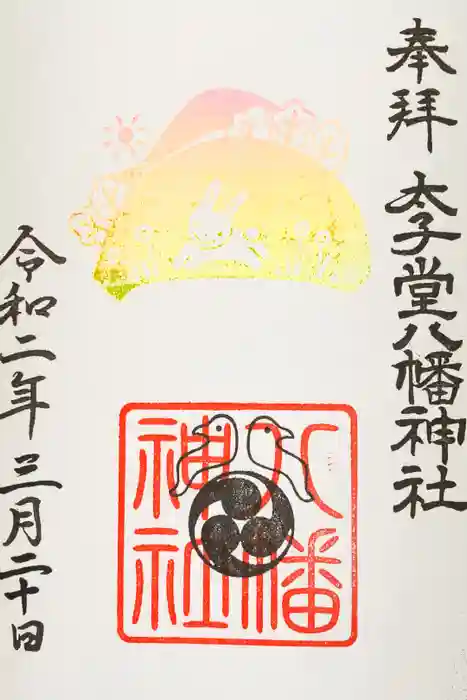 奉拝 太子堂八幡神社
八幡
神社
令和二年三月二十日